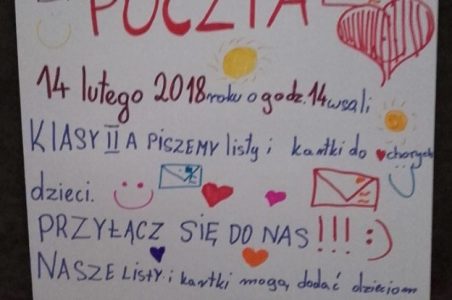 POCZTA
14 lutego 2018 roku o godz. 14 w sali
KLASY II A PISZEMY listy i kartki do chorych
dzieci.
PRZYŁĄCZ SIĘ DO NAS!!! :)
NASZE listy i kartki mogą dodać dzieciom